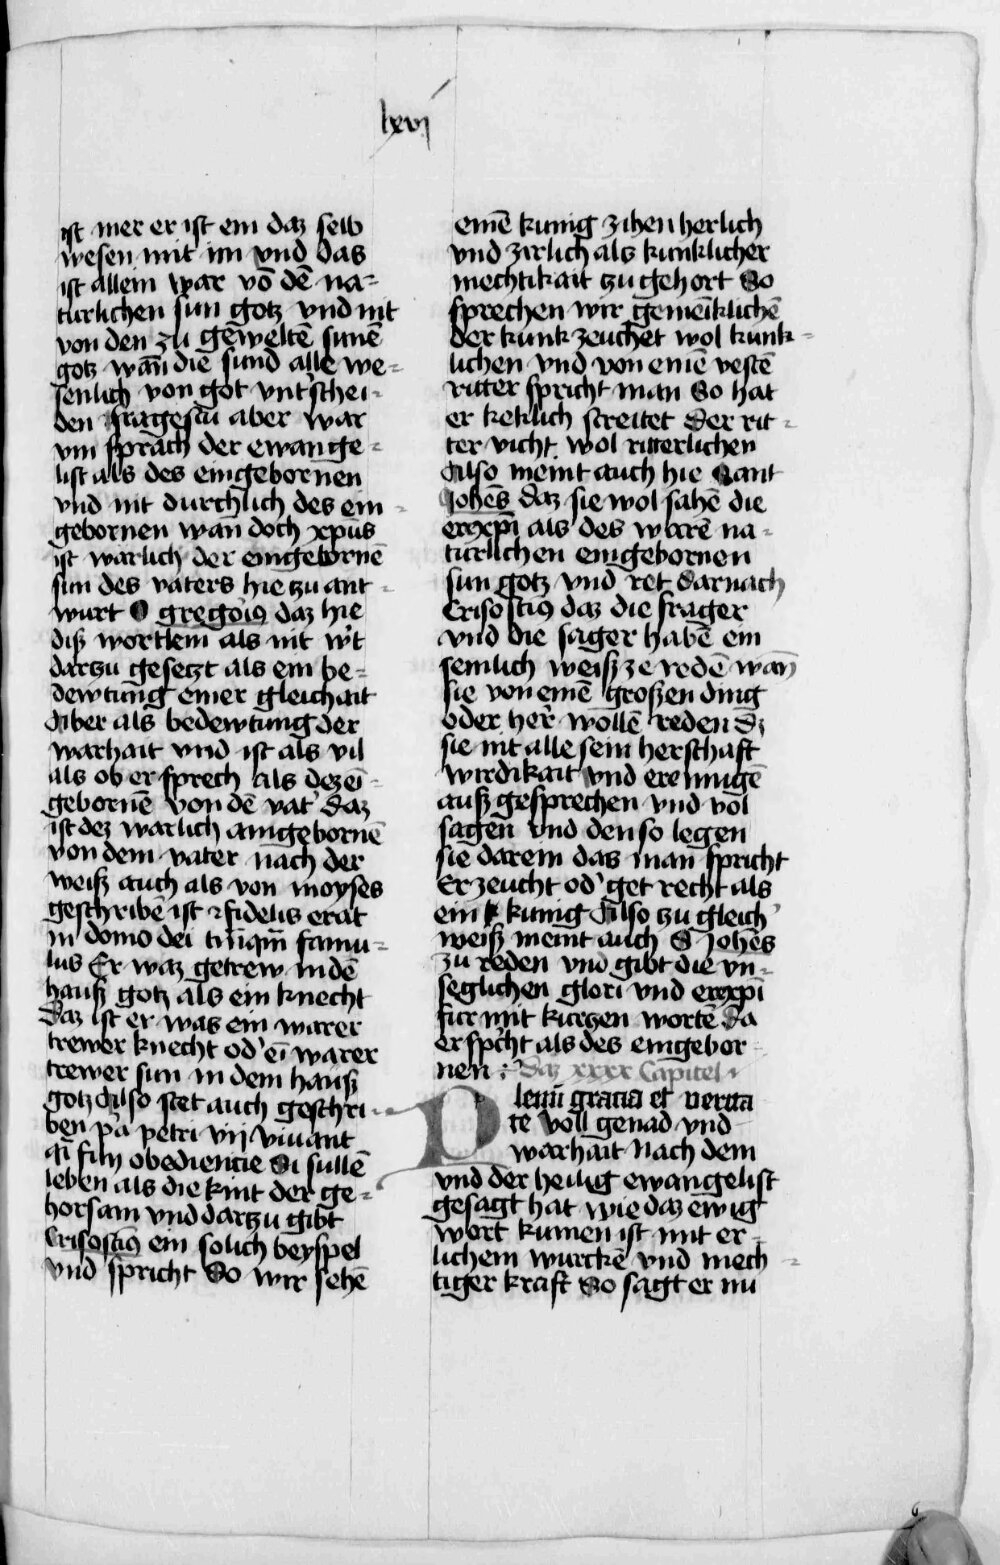 lxvj
ist mer er ist ein daz selb
wesen mit im vnd das
ist allein war vō dē na-
turlichen sun gotz vnd nit
von den zu geweltē sunē
gotz wān die sund alle we-
senlich von got vntschei-
den fragestu aber war
vm sprach der ewange-
list als des eingebornen
vnd nit durchlich des ein-
gebornen wan doch xp̄us
ist warlich der eingebornē
sun des vaters hie zu ant-
wurt S gregoriꝰ daz hie
diß wortlein als nit wt
dartzu gesetzt als ein be-
dewtung einer gleichait
Aber als bedewtung der
warhait vnd ist als vil
als ob er sprech als dez eī-
gebornē von dē vat' daz
ist dez warlich aingebornē
von dem vater nach der
weiß auch als von moyses
geschribē ist fidelis erat
in domo dei tm̄qm̄ famu-
lus Er waz getrew in dē
hauß gotz als ein knecht
daz ist er was ein warer
trewer knecht od' eī warer
trewer sun in dem hauß
gotz Also stet auch geschri-
ben pa petri vij viuant
qi filij obediencie Si sullē
leben als die kint der ge-
horsam vnd dartzu gibt
Crisostiꝰ ein solich beyspel
vnd spricht So wir sehē
einē kunig zihen herlich
vnd zirlich als kunklicher
mechtikait zu gehort So
sprechen wir gemeiklichē
der kunk zeuchet wol kunk-
lichen vnd von einē vestē
ritter spricht man So hat
er keklich streitet der rit-
ter vicht wol ritterlichen
Also meint auch hie Sant
Johēs daz sie wol sahē die
ere xp̄i als des warē na-
turlichen eingebornen
sun gotz vnd ret darnach
Crisostiꝰ daz die frager
vnd die sager habē ein
semlich weiß ze redē wān
sie von einē großen ding
oder her' wollē reden dz
sie nit alle sein herschaft
wirdikait vnd ere mugē
auß gesprechen vnd vol
sagen vnd den so legen
sie darein das man spricht
Er zeucht od' get recht als
ein kunig Also zu gleich'
weiß meint auch S Johēs
zu reden vnd gibt die vn-
seglichen glori vnd ere xp̄i
fur mit kurtzen wortē da
er sp'cht als des eingebor-
nen : Daz xxxx Capitel
Plenū gratia et verita
te voll genad vnd
warhait Nach dem
vnd der heilig ewangelist
gesagt hat wie daz ewig
wort kumen ist mit er-
lichem wurckē vnd mech-
tiger kraft So sagt er nu